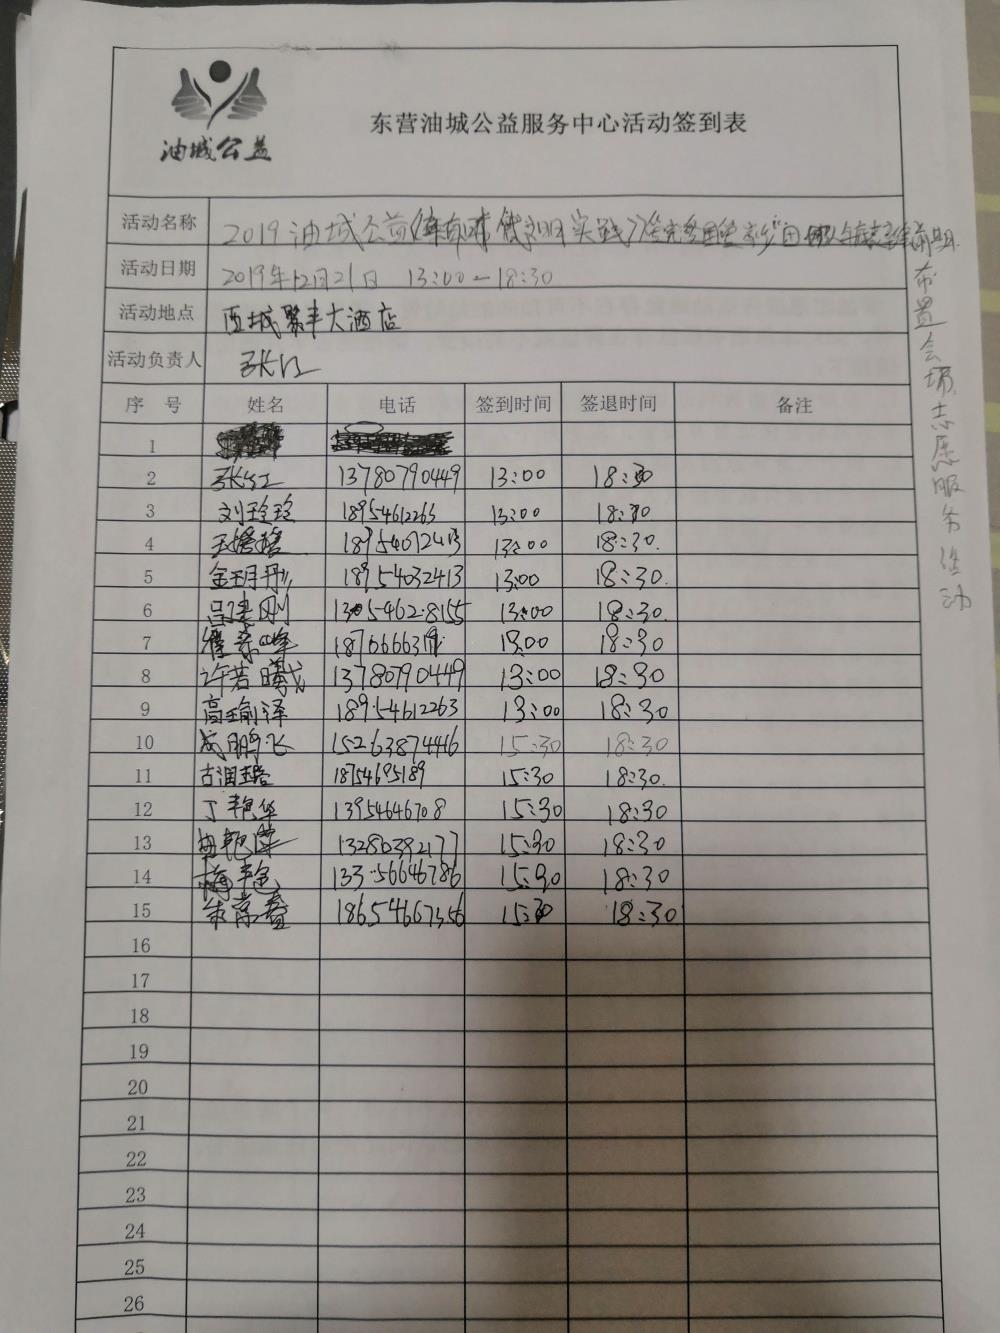 油城公益
东营油城公益服务中心活动签到表
活动名称 2019油城公益
活动日期 2019年12月21日 13:00-18:30
活动地点 西城聚丰大酒店
活动负责人 张红
布置会场志愿服务活动
序号 姓名 电话 签到时间 签退时间 备注
1
2 张红 13780790449 13:00 18:30
3 刘玲玲 18954612263 13:00 18:30
4 13:00 18:30.
5 金玥彤 18954032413 13:00 18:30.
6 吕建刚 1305462·8155 13:00 18:30
7 13:00 18:30
8 许若曦 13780790449 13:00 18:30
9 高瑜泽 18954612263 13:00 18:30
10 鹏飞 15263874446 15:30 18:30
11 古润 18754695189 15:30 18:30.
12 丁艳华 13954646708 15:30 18:30
13 13280392177 15:30 18:30
14 梅艳 133·56646786 15:30 18:30
15 朱常春 18654667356 15:30 18:30
16
17
18
19
20
21
22
23
24
25
26